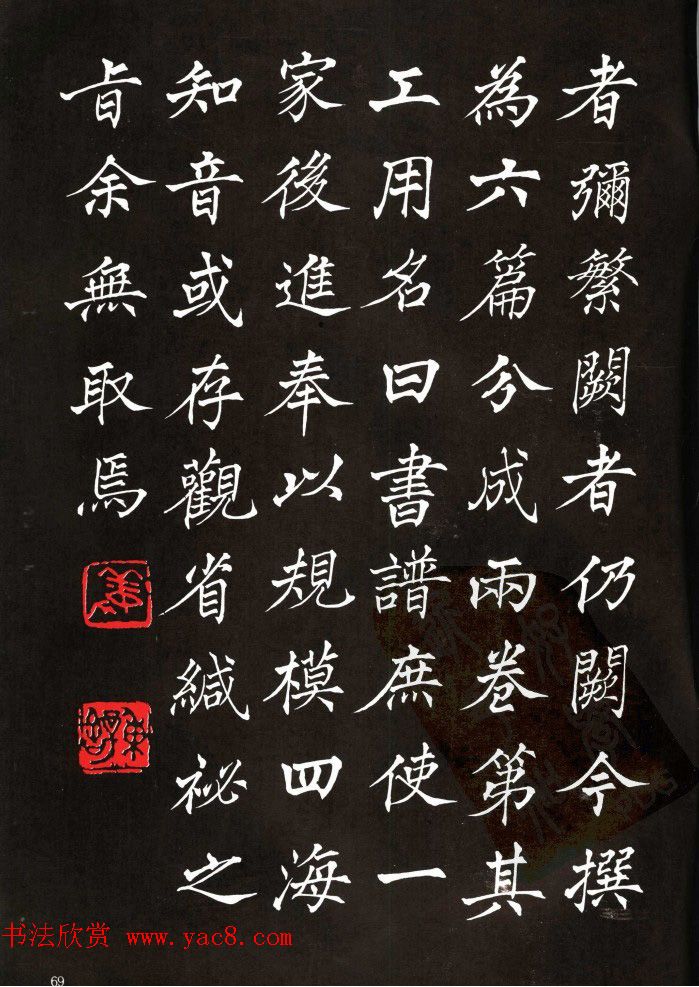 者彌繁闕者仍闕今撰
為六篇分成兩卷第其
工用名曰書譜庶使一
家後進奉以規模四海
知音或存觀省緘祕之
旨余無取焉
书法欣赏 www.yac8.com
69